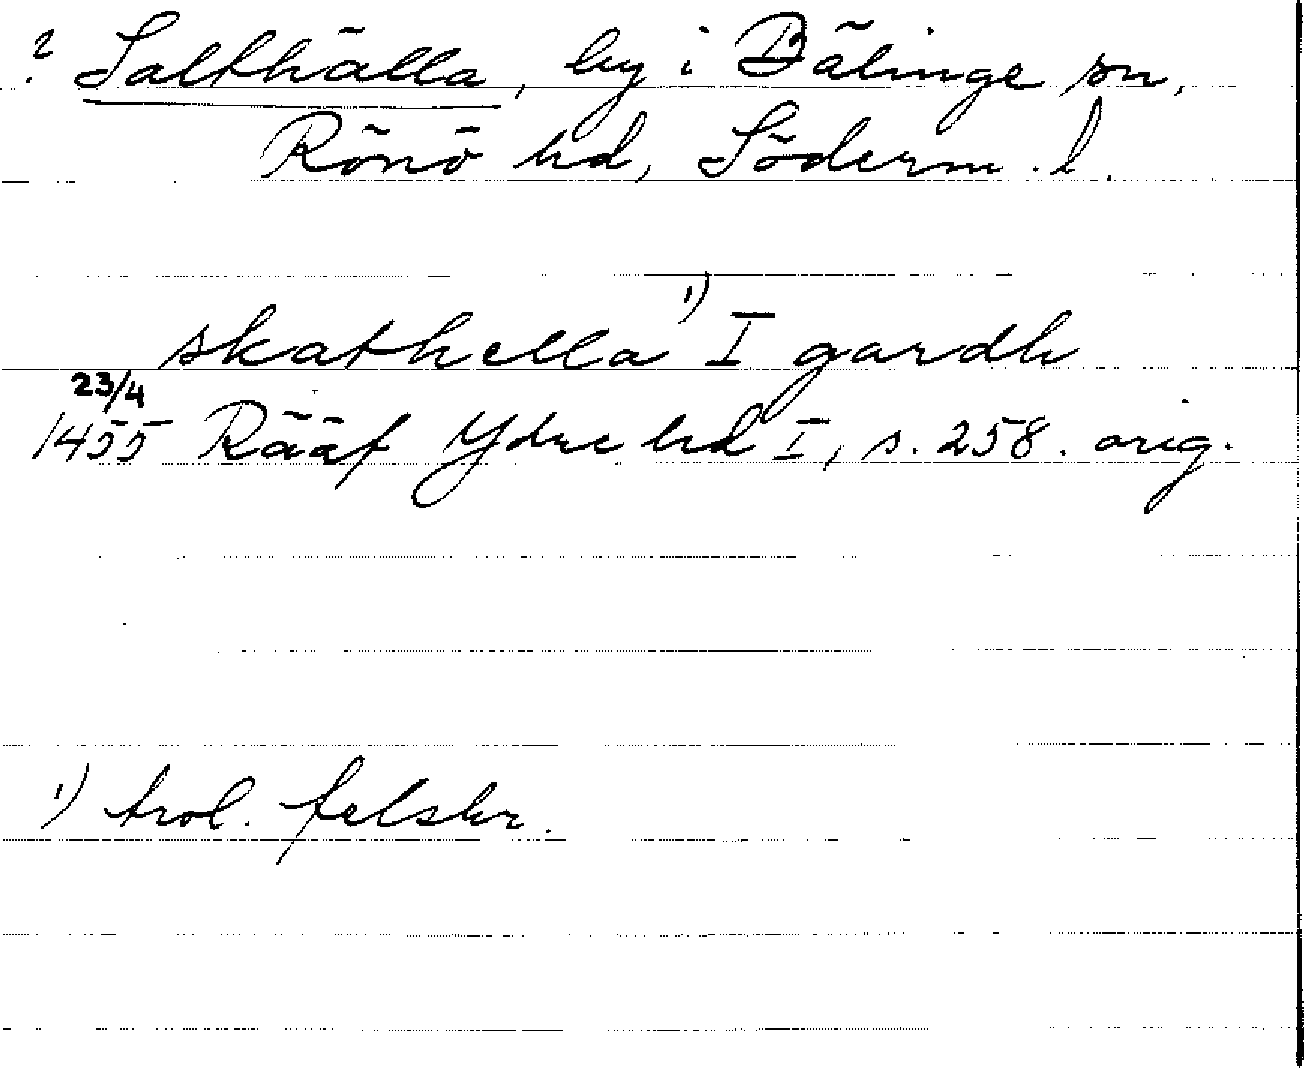 ? Salthälla, by i Bälinge sn,
Rönö hd, Söderm. l.
skathella 1) I gardh
23/4
1455 Rääf Ydre hd I, s. 258. orig.
1) trol. felskr.